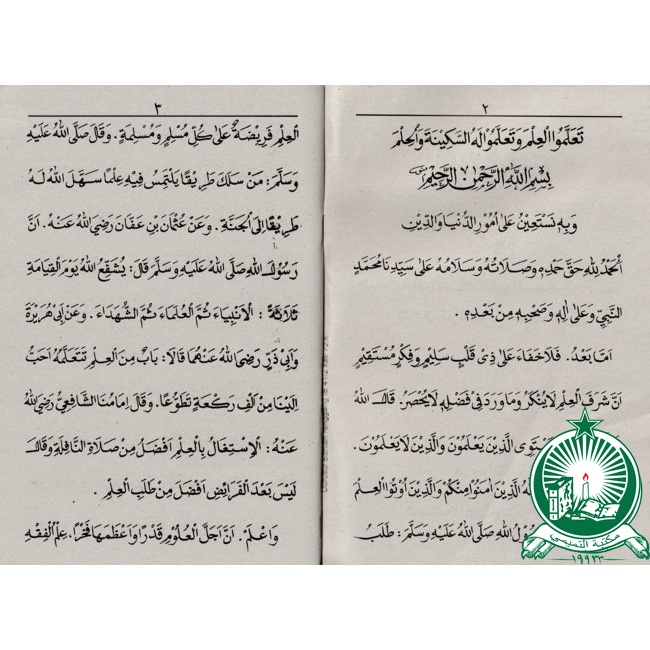 ٢
تَعَلَّمُوا الْعِلْمَ وَتَعَلَّمُوْا لَهُ السَّكِيْنَةَ وَالْحِلْمَ
بِسْمِ اللهِ الرَّحْمٰنِ الرَّحِيْمِ
وَبِهِ نَسْتَعِيْنُ عَلَى أُمُوْرِ الدُّنْيَا وَالدِّيْنِ
اَلْحَمْدُ لِلّٰهِ حَقَّ حَمْدِهِ وَصَلَاتُهُ وَسَلَامُهُ عَلَى سَيِّدِنَا مُحَمَّدٍ
النَّبِيِّ وَعَلَى اٰلِهِ وَصَحْبِهِ مِنْ بَعْدِهِ .
اَمَّا بَعْدُ . فَلَا خَفَاءَ عَلَى ذِى قَلْبٍ سَلِيْمٍ وَفِكْرٍ مُسْتَقِيْمٍ
اَنَّ شَرَفَ الْعِلْمِ لَا يُنْكَرُ وَمَا وَرَدَ فِى فَضْلِهِ لَا يُحْصَرُ . قَالَ اللهُ
يَسْتَوِى الَّذِيْنَ يَعْلَمُوْنَ وَالَّذِيْنَ لَا يَعْلَمُوْنَ .
اللهُ الَّذِيْنَ اٰمَنُوْا مِنْكُمْ وَالَّذِيْنَ أُوْتُوا الْعِلْمَ
رَسُوْلُ اللهِ صَلَّى اللهُ عَلَيْهِ وَسَلَّمَ : طَلَبُ
٣
اَلْعِلْمِ فَرِيْضَةٌ عَلَى كُلِّ مُسْلِمٍ وَمُسْلِمَةٍ . وَقَالَ صَلَّى اللهُ عَلَيْهِ
وَسَلَّمَ : مَنْ سَلَكَ طَرِيْقًا يَلْتَمِسُ فِيْهِ عِلْمًا سَهَّلَ اللهُ لَهُ
طَرِيْقًا اِلَى الْجَنَّةِ . وَعَنْ عُثْمَانَ بْنِ عَفَّانَ رَضِيَ اللهُ عَنْهُ . اَنَّ
رَسُوْلَ اللهِ صَلَّى اللهُ عَلَيْهِ وَسَلَّمَ قَالَ : يُشَفِّعُ اللهُ يَوْمَ الْقِيَامَةِ
ثَلَاثَةً : اَلْأَنْبِيَاءَ ثُمَّ الْعُلَمَاءَ ثُمَّ الشُّهَدَاءَ . وَعَنْ اَبِى هُرَيْرَةَ
وَاَبِى ذَرٍّ رَضِيَ اللهُ عَنْهُمَا قَالَا : بَابٌ مِنَ الْعِلْمِ تَتَعَلَّمُهُ اَحَبُّ
اِلَيْنَا مِنْ اَلْفِ رَكْعَةٍ تَطَوُّعًا . وَقَالَ اِمَامُنَا الشَّافِعِيُّ رَضِيَ اللهُ
عَنْهُ : اَلْاِشْتِغَالُ بِالْعِلْمِ اَفْضَلُ مِنْ صَلَاةِ النَّافِلَةِ وَقَالَ
لَيْسَ بَعْدَ الْفَرَائِضِ اَفْضَلُ مِنْ طَلَبِ الْعِلْمِ .
وَاعْلَمْ . اَنَّ اَجَلَّ الْعُلُوْمِ قَدْرًا وَاَعْظَمَهَا فَخْرًا، عِلْمُ الْفِقْهِ
مكتبة التميمي